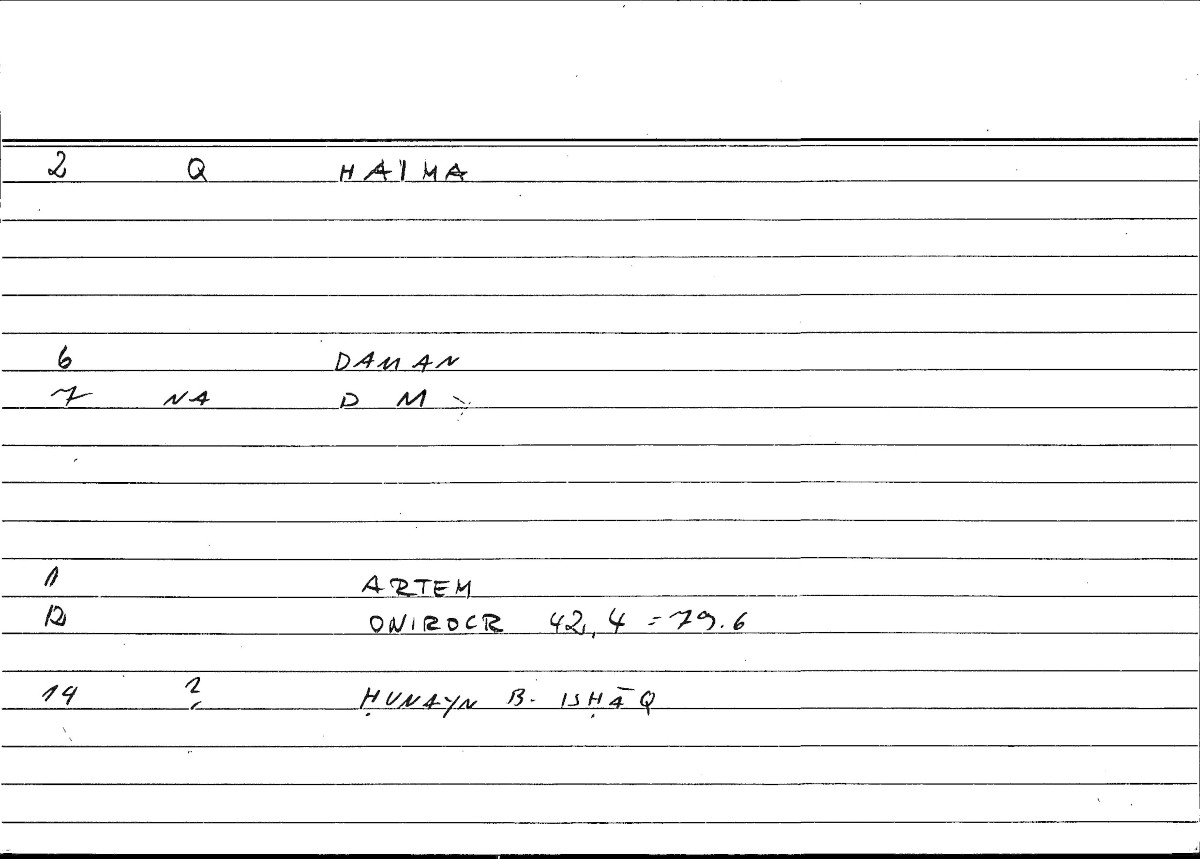 2 Q HAIMA
6 DAMAN
7 NA D M
1 ARTEM
12 ONIROCR 42,4 = 79.6
14 ? ḤUNAYN B. ISḤĀQ